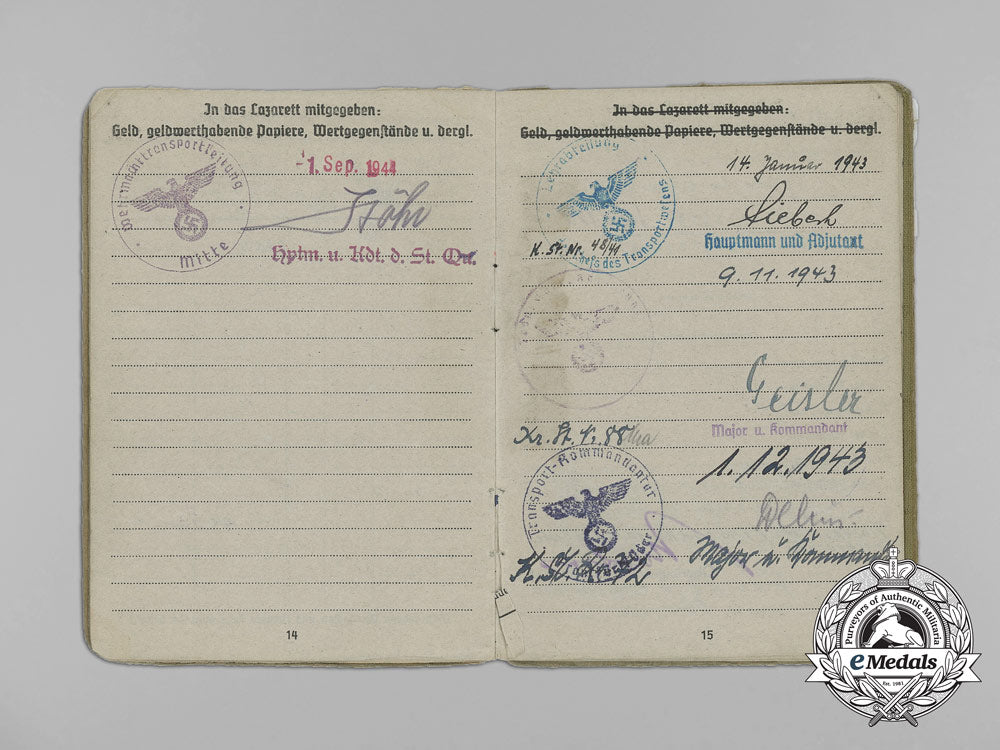 In das Lazarett mitgegeben:
Geld, geldwerthabende Papiere, Wertgegenstände u. dergl.
Wehrmachttransportleitung
Mitte
-1. Sep. 1944
Hptm. u. Kdt. d. St. Qu.
14
In das Lazarett mitgegeben:
Geld, geldwerthabende Papiere, Wertgegenstände u. dergl.
Lehrabteilung
des Transportwesens
14. Januar 1943
Hauptmann und Adjutant
K. St. Nr.
9. 11. 1943
Geisler
Major u. Kommandant
Kr. St. N. 88
1. 12. 1943
Transport-Kommandantur
Major u. Kommandt
15
Purveyors of Authentic Militaria
eMedals
Est. 1981